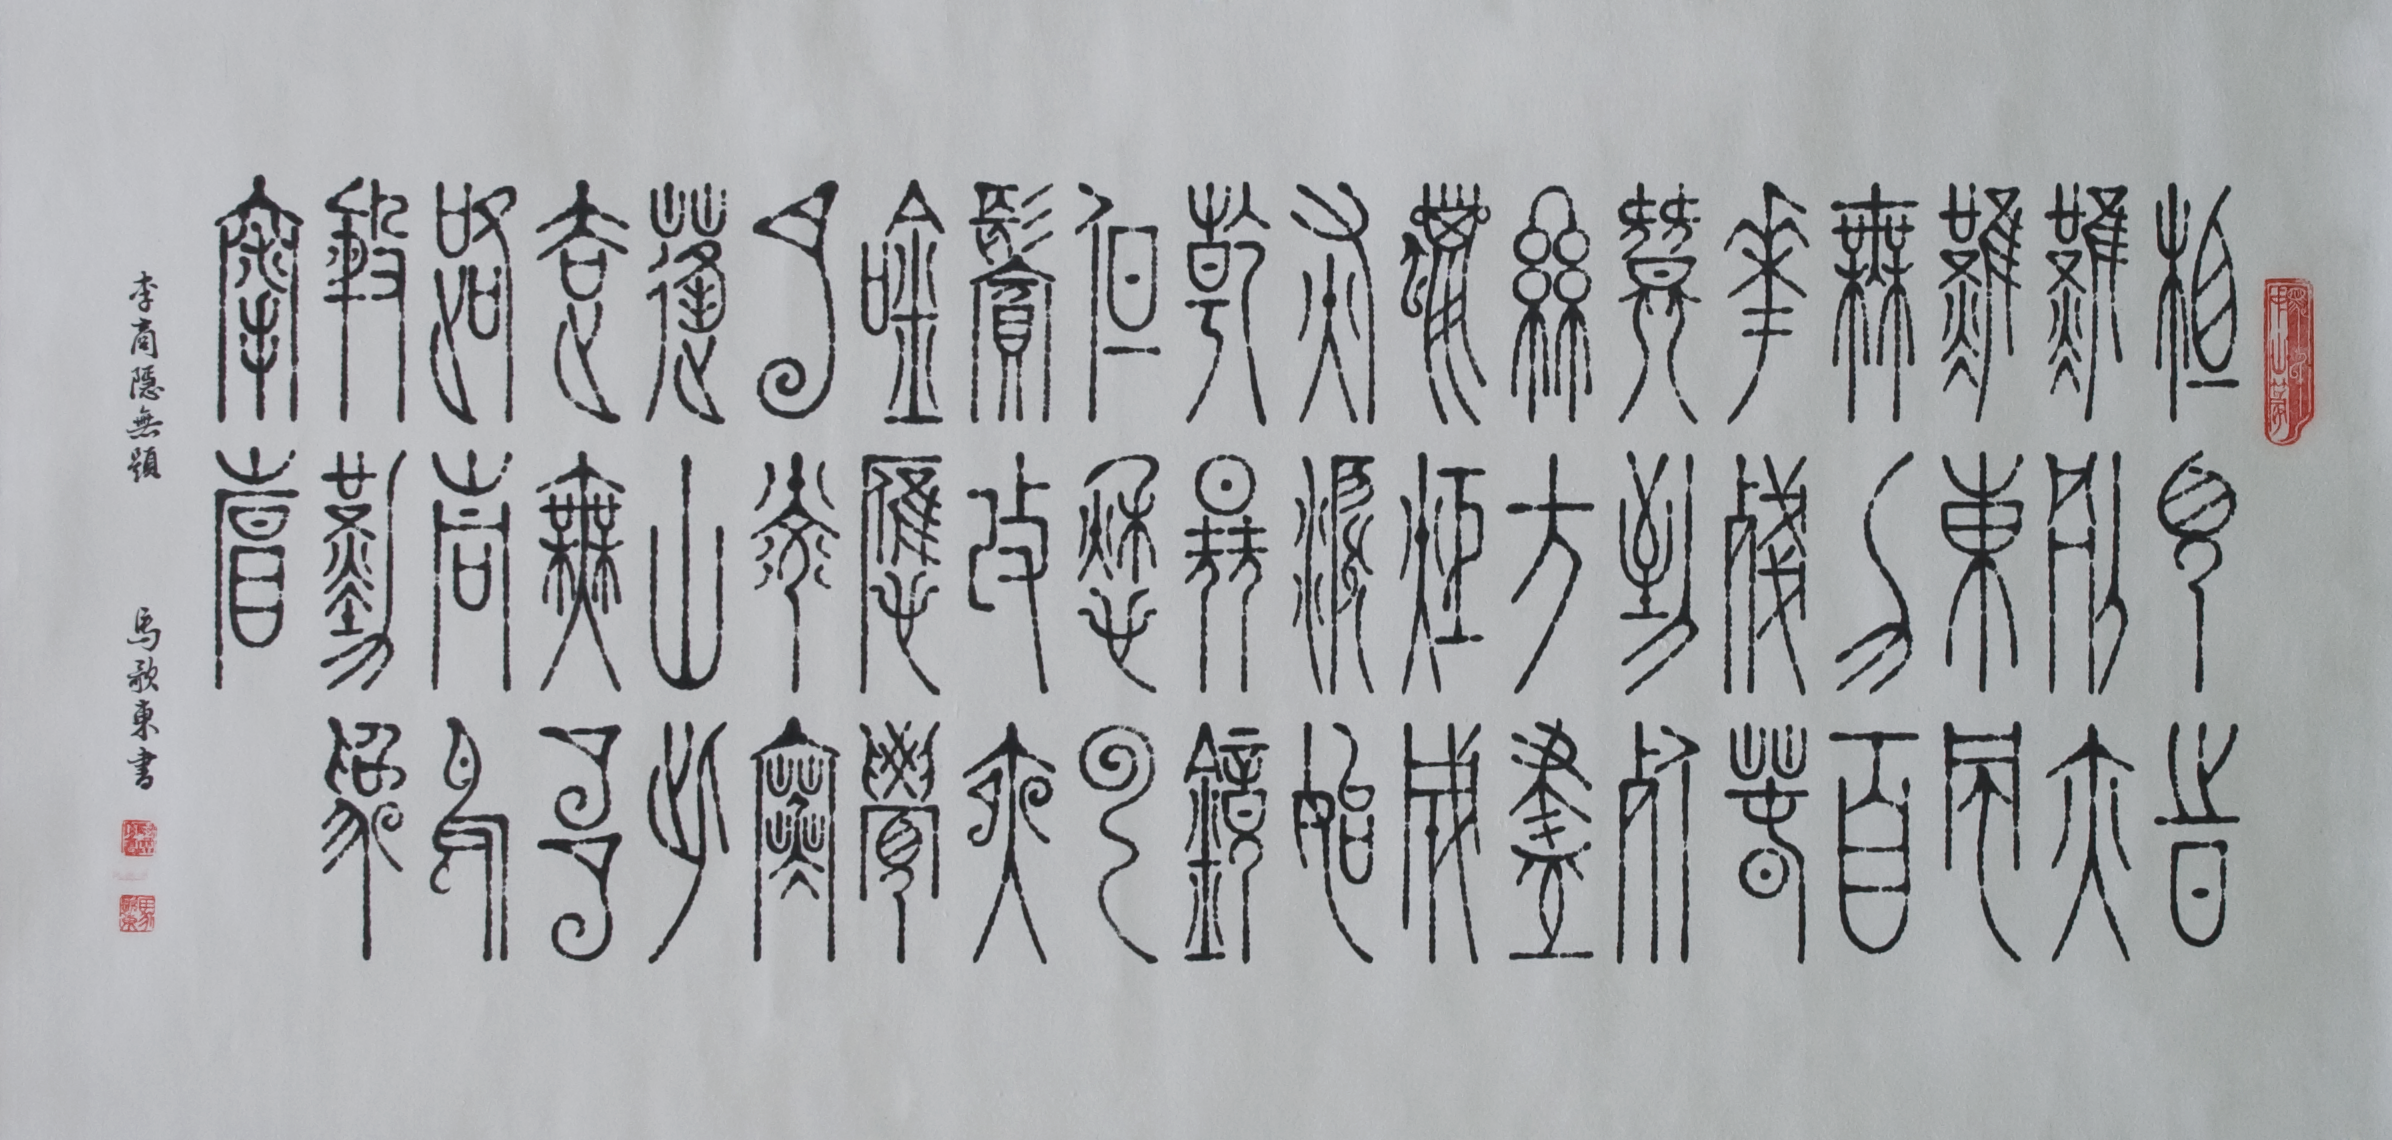 相見時
難別亦
難東風
無力百
花殘春
蠶到死
絲方盡
蠟炬成
灰淚始
乾曉鏡
但愁雲
鬢改夜
吟應覺
月光寒
蓬山此
去無多
路青鳥
殷勤爲
探看
李商隱無題 馬歌東書